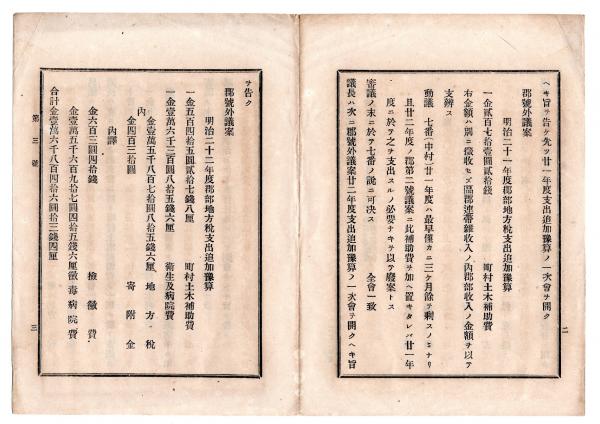 ヘキ旨ヲ告ケ先ツ廿一年度支出追加豫算ノ一次會ヲ開ク
郡號外議案
明治二十一年度郡部地方稅支出追加豫算
一金貳百七拾壹圓貳拾錢 町村土木補助費
右金額ハ別ニ徵收セズ區郡連帶雜收入ノ內郡部收入ノ金額ヲ以テ
支辨ス
動議 七番(中村)廿一年度ハ最早僅カニ三ケ月餘ヲ剩スノミナリ
且廿二年度ノ郡第二號議案ニ此補助費ヲ加ヘ置キタレバ廿一年
度ニ於テ之ヲ支出スルノ必要ナキヲ以テ廢案トス
審議ノ末ニ於テ七番ノ說ニ可決ス 全會一致
議長ハ次ニ郡號外議案廿二年度支出追加豫算ノ一次會ヲ開クヘキ旨
二
ヲ告ク
郡號外議案
明治二十二年度郡部地方稅支出追加豫算
一金五百四拾五圓貳拾七錢八厘 町村土木補助費
一金壹萬六千三百圓八拾五錢六厘 衞生及病院費
內
金壹萬五千八百七拾圓八拾五錢六厘 地方稅
金四百三拾圓 寄附金
內譯
金六百三圓四拾錢 檢黴費
金壹萬五千六百九拾七圓四拾五錢六厘 黴毒病院費
合計金壹萬六千八百四拾六圓拾三錢四厘
第三號
三